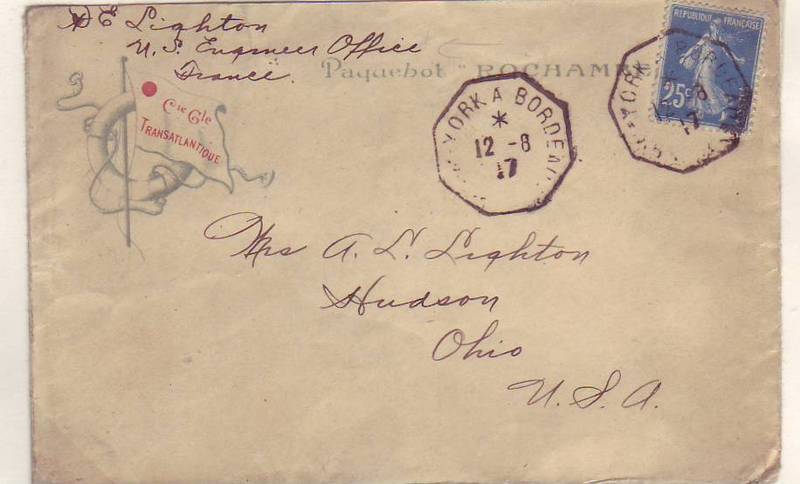 E Lighton
U. S. Engineer Office
France.
Paquebot "ROCHAMBE
Cie Gle
TRANSATLANTIQUE
YORK A BORDEAU
*
12 -8
17
REPUBLIQUE FRANÇAISE
25c
YORK
8
17
Mrs A. L. Lighton
Hudson
Ohio
U. S. A.